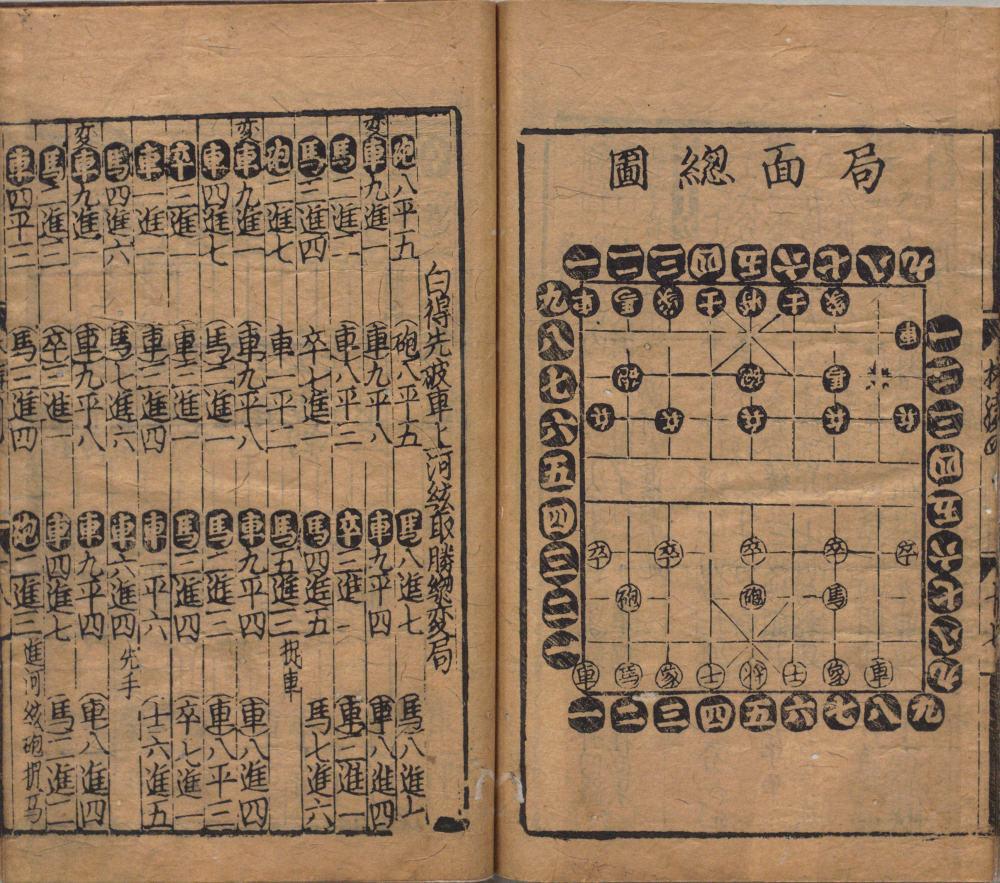 局面總圖
一二三四五六七八九
九八七六五四三二一
一二三四五六七八九
車馬象士將士象
車
砲砲馬
兵兵兵兵兵
卒卒卒卒卒
砲砲馬
車馬象士将士象車
一二三四五六七八九
白得先破車上河絃取勝總変局
砲八平五 砲八平五 馬八進七 馬八進七
変車九進一 車九平八 車九平四 車八進四
馬二進一 車八平三 卒三進一 車三進一
馬三進四 卒七進一 馬四進五 馬七進六
砲二進七 車一平二 馬五進三 捉車
変車九進一 車九平八 車九平四 車八進四
車四進七 馬二進一 馬二進三 車八平三
卒三進一 車三進一 馬三進四 卒七進一
車一進一 車三進四 車一平六 士六進五
馬四進六 馬七進六 車六進四 先手
変車九進一 車九平八 車九平四 車八進四
馬二進三 卒三進一 車四進七 馬二進二
車四平三 馬三進四 砲二進三 進河絃砲捉馬